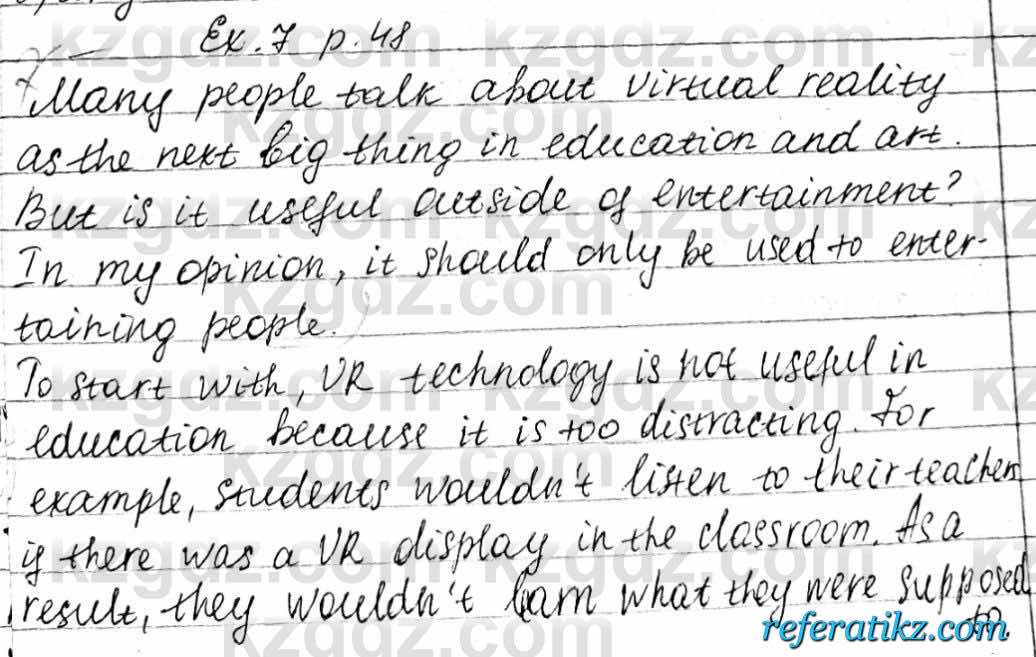 Ex. 7 p. 48
Many people talk about virtual reality
as the next big thing in education and art.
But is it useful outside of entertainment?
In my opinion, it should only be used to enter-
taining people.
To start with, VR technology is not useful in
education because it is too distracting. For
example, students wouldn't listen to their teacher
if there was a VR display in the classroom. As a
result, they wouldn't learn what they were supposed
to.
referatikz.com